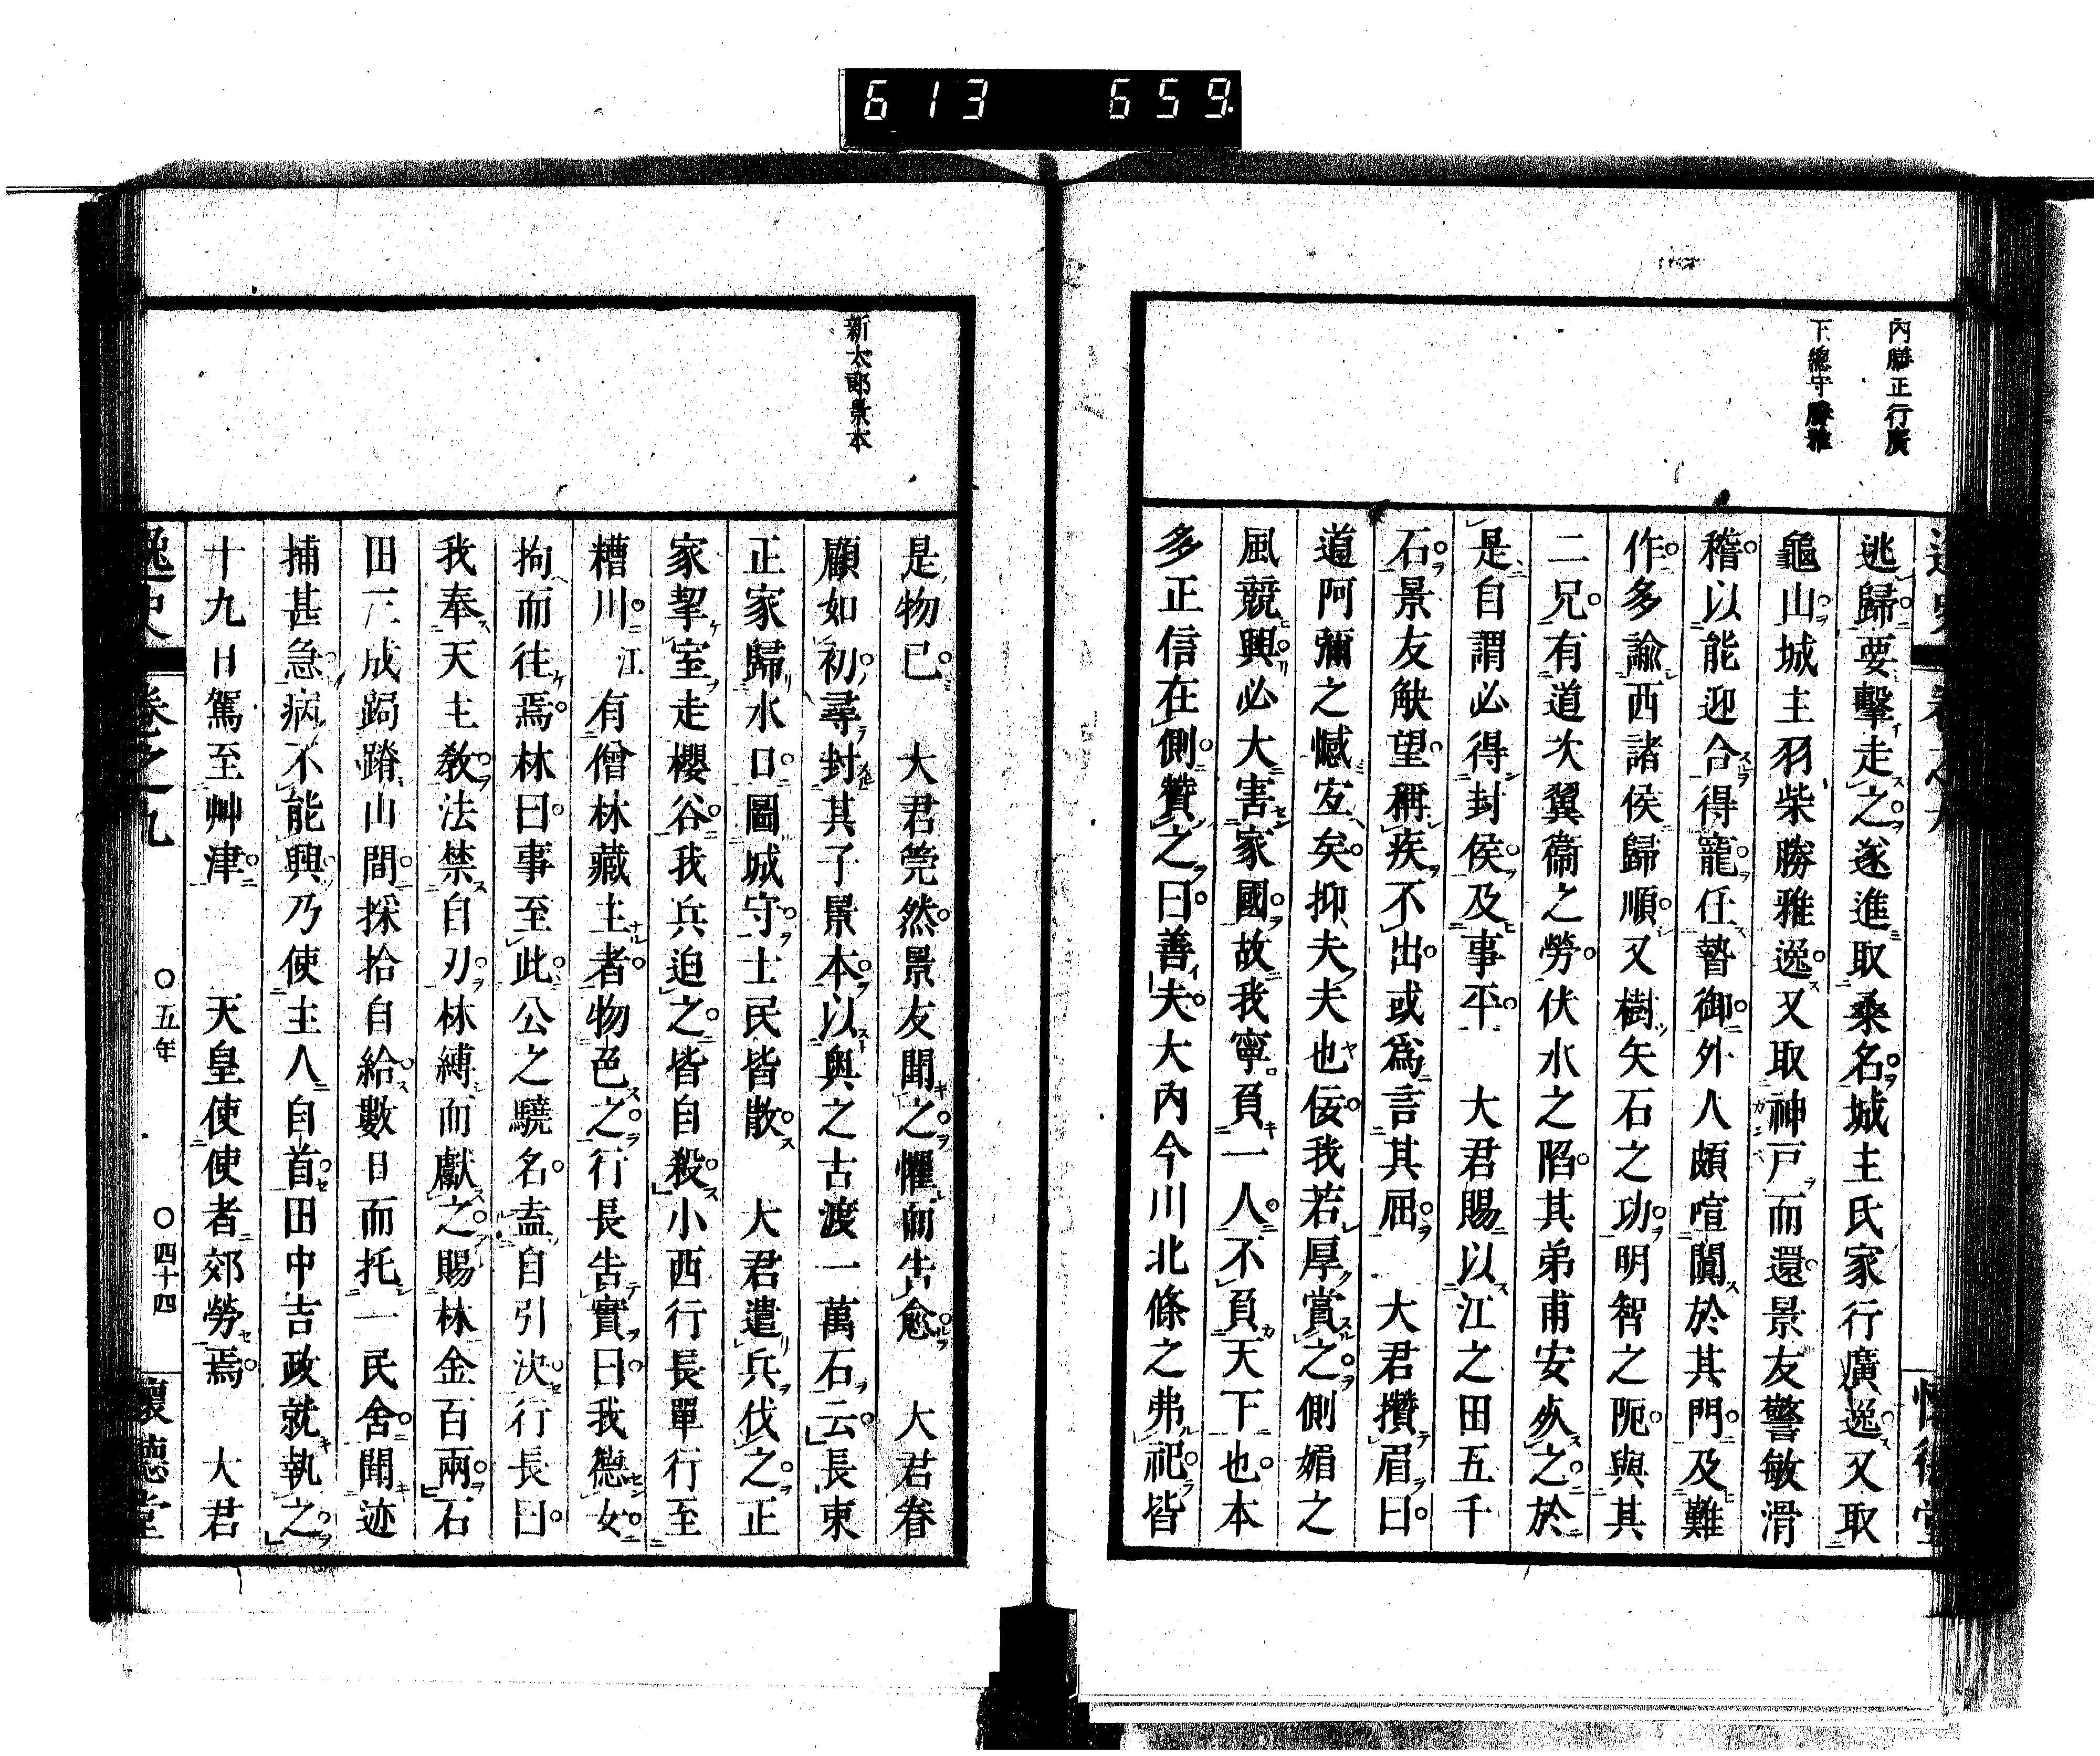 613 659.
內膳正行廣
下總守勝雅
逃歸要擊走之遂進取桑名城主氏家行廣逸又取
龜山城主羽柴勝雅逸又取神戸而還景友警敏滑
稽以能迎合得寵任暬御外人頗喧闐於其門及難
作多諭西諸侯歸順又樹矢石之功明智之阨與其
二兄有道次翼衞之勞伏水之陷其弟甫安死之於
是自謂必得封侯及事平 大君賜以江之田五千
石景友觖望稱疾不出或爲言其屈 大君攢眉曰
道阿彌之憾宐矣抑夫夫也佞我若厚賞之側媚之
風競興必大害家國故我寧負一人不負天下也本
多正信在側贊之曰善夫大內今川北條之弗祀皆
新太郎景本
是物已 大君莞然景友聞之懼而告愈 大君眷
顧如初尋封其子景本以與之古渡一萬石云長束
正家歸水口圖城守士民皆散 大君遣兵伐之正
家挈室走櫻谷我兵迫之皆自殺小西行長單行至
糟川江有僧林藏主者物色之行長告實曰我德女
拘而往焉林曰事至此公之驍名盍自引決行長曰
我奉天主敎法禁自刃林縛而獻之賜林金百兩石
田三成跼蹐山間採拾自給數日而托一民舍聞迹
捕甚急病不能興乃使主人自首田中吉政就執之
十九日駕至艸津 天皇使使者郊勞焉 大君
逸史 卷之九 ○五年 ○四十四 懷德堂